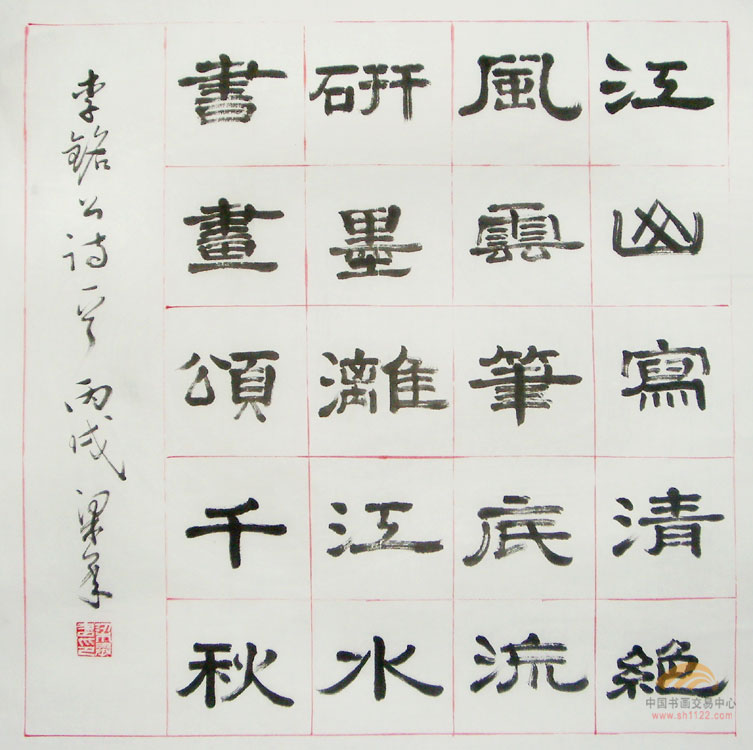 江山寫清絕
風雲筆底流
研墨灕江水
書畫頌千秋
李銘公詩一首 丙戌 梁峯
中国书画交易中心
www.sh1122.com